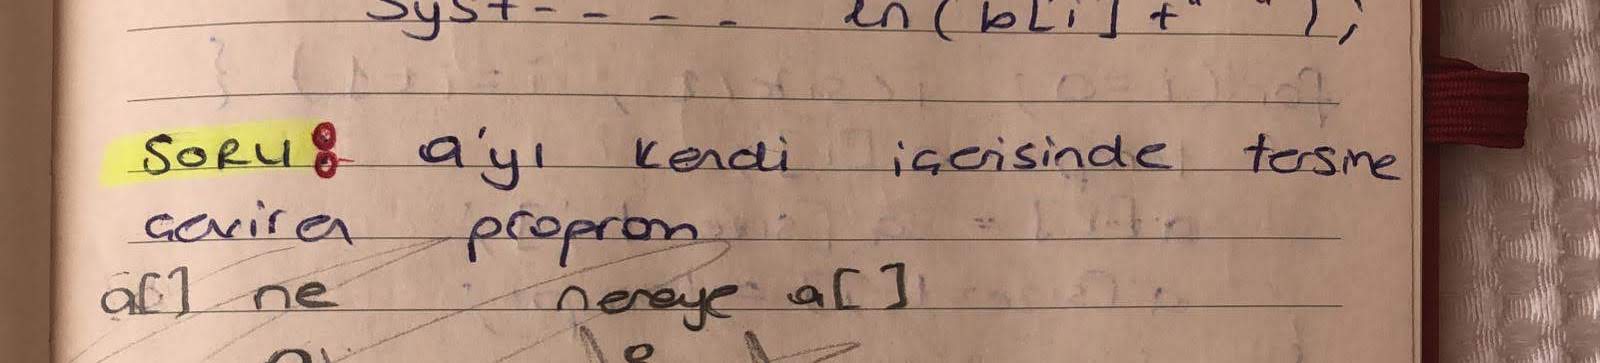 Syst - - - - ln(b[i]+" ");
SORU: a'yı kendi içerisinde tersine
çeviren program
a[] ne nereye a[]